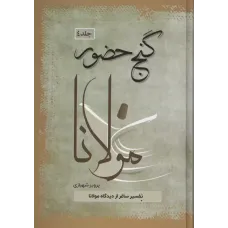 جلد ٤
گنج حضور
مولانا
پرویز شهبازی
تفسیر ساغر از دیدگاه مولانا